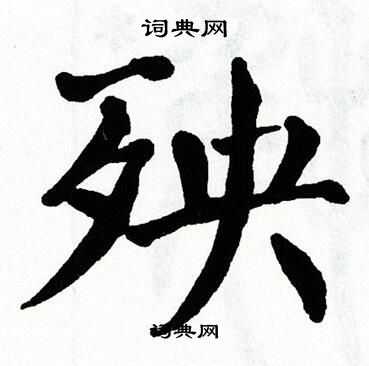 词典网
殃
词典网